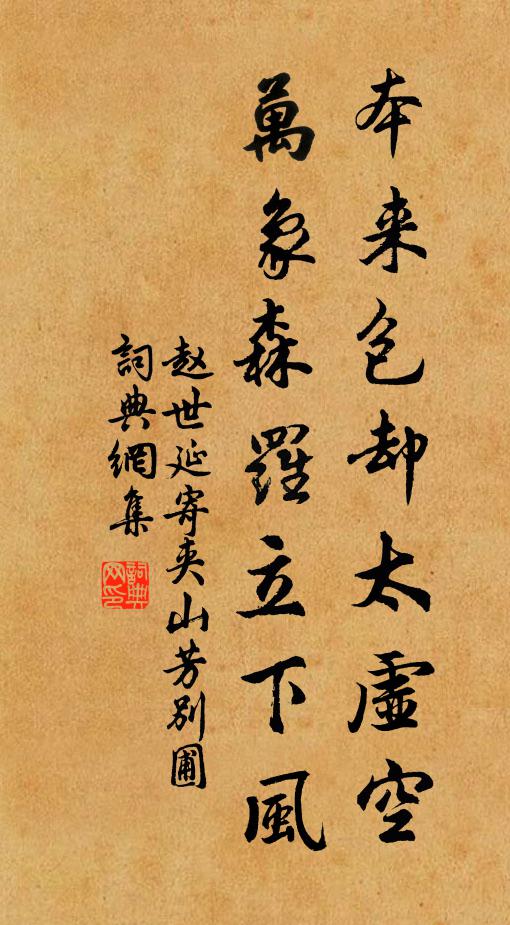 本来包却太虚空
萬象森羅立下風
赵世延寄夹山芳别圃
詞典網集
詞典网印